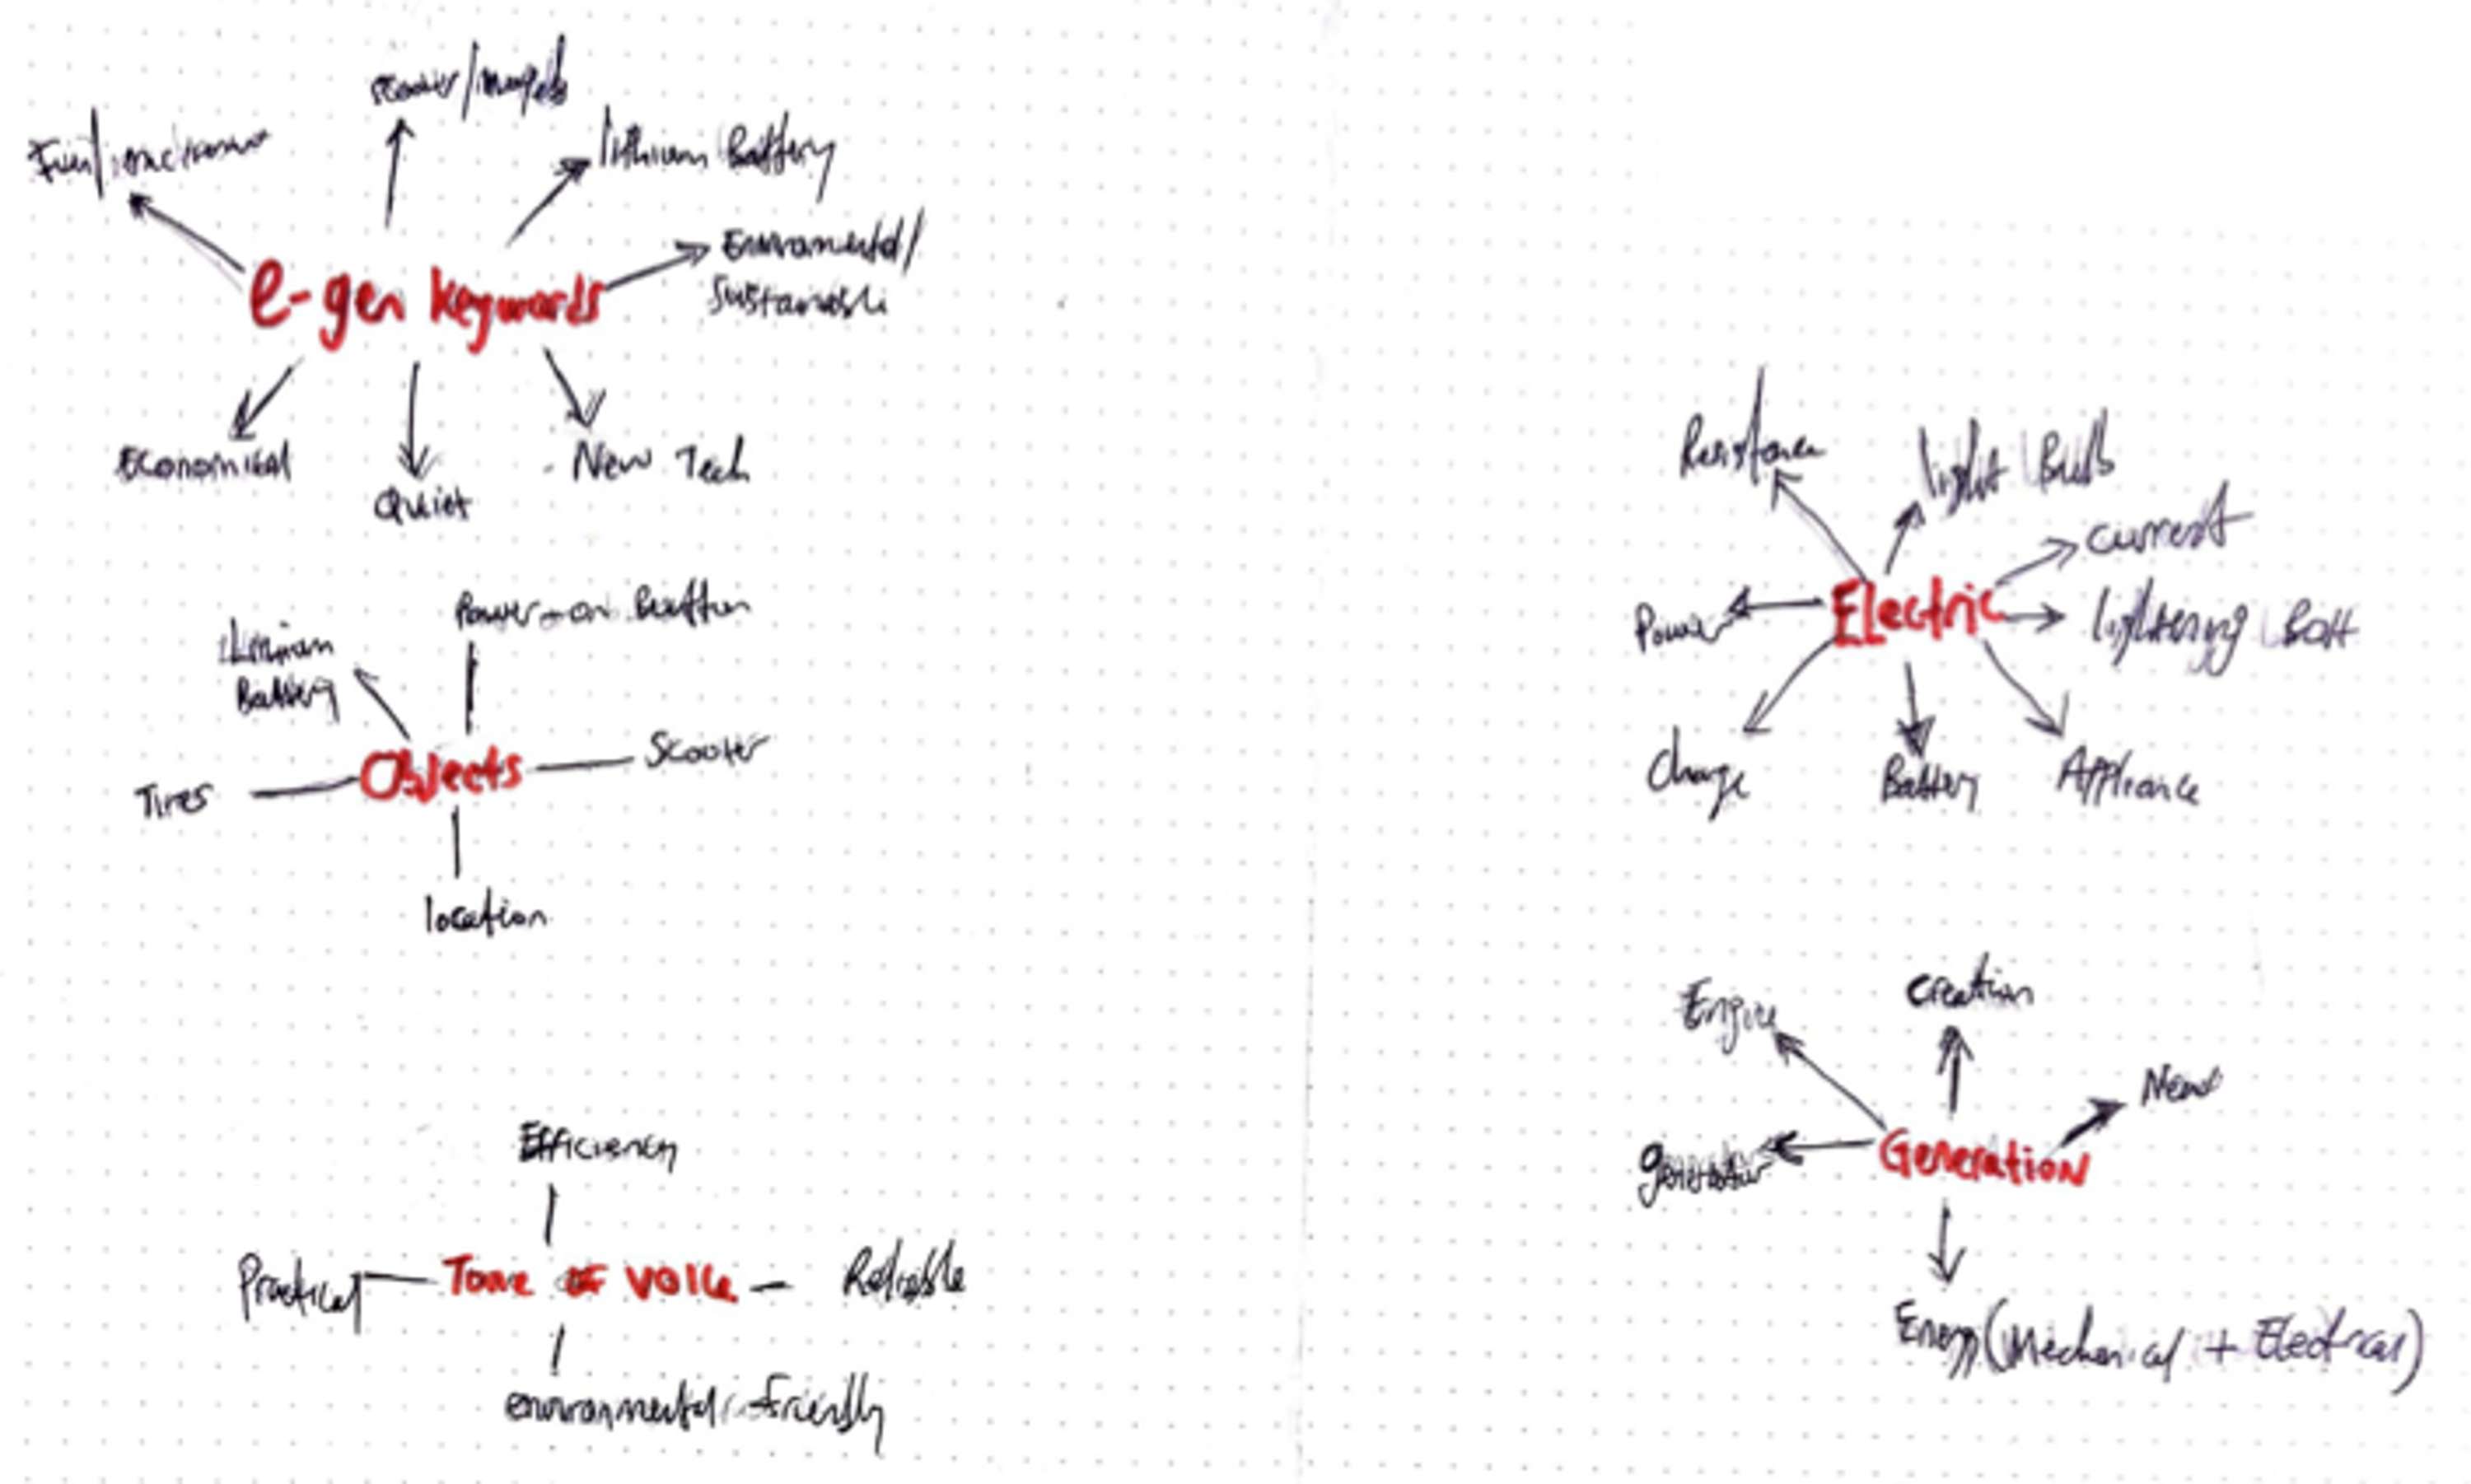 lithium Battery
Enviromental/
Sustainable
e-gen keywords
Economical
Quiet
New Tech
Power-on Button
Battery
Objects
Scooter
Tires
location
Efficiency
Practical
Tone of Voice
Reliable
environmental-friendly
Resistance
light Bulb
current
Power
Electric
lightening Bolt
Charge
Battery
Appliance
Engine
Creation
generator
Generation
Energy (Mechanical + Electrical)